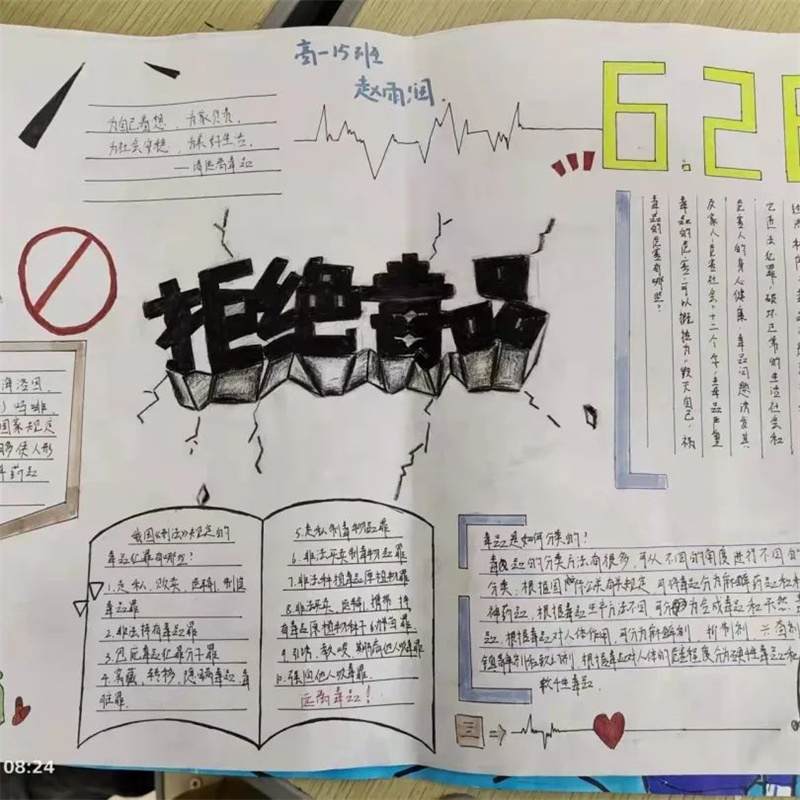 高一15班
赵雨润
为自己着想，为家负责，
为社会安想，为美好生活，
——请远离毒品
6.26
拒绝毒品
毒品的危害有哪些？
毒品的危害，可以概括为“毁灭自己，祸
及家人，危害社会”十二个字，毒品严重
危害人的身心健康，毒品问题诱发其
它违法犯罪，破坏正常的生活社会和
海洛因、
吗啡、
国家规定
够使人形
我国《刑法》规定的
毒品犯罪有哪些？
1.走私、贩卖、运输、制造
毒品罪
2.非法持有毒品罪
3.包庇毒品犯罪分子罪
4.窝藏、转移、隐瞒毒品、毒
赃罪.
5.走私制毒物品罪
6.非法买卖制毒物品罪
7.非法种植毒品原植物罪
8.非法买卖、运输、携带、持
有毒品原植物种子、幼苗罪
9.引诱、教唆、欺骗他人吸毒罪
10.强迫他人吸毒罪.
远离毒品！
毒品是如何分类的？
毒品的分类方法有很多，可从不同的角度进行不同的
分类，根据国际公约有关规定，可将毒品分为麻醉药品和精
神药品，根据毒品生产方法不同，可分为合成毒品和天然毒
品，根据毒品对人体作用，可分为麻醉剂、抑制剂、兴奋剂
镇静剂和致幻剂，根据毒品对人体的危害程度分为硬性毒品和
软性毒品.
三
08:24